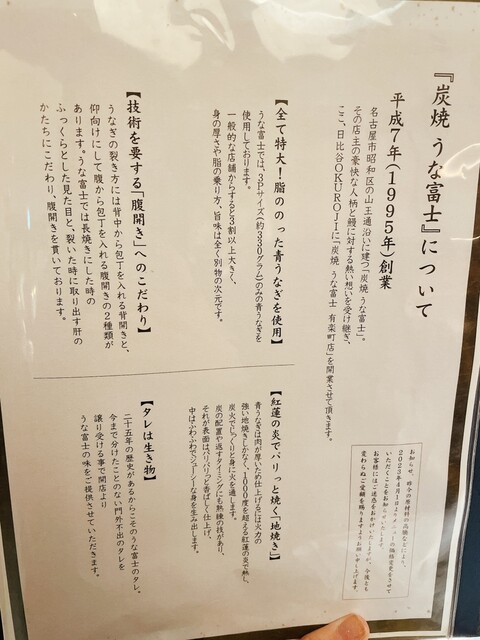 『炭焼 うな富士』について
平成7年(1995年)創業
名古屋市昭和区の山王通沿いに建つ「炭焼 うな富士」。
その店主の豪快な人柄と鰻に対する熱い想いを受け継ぎ、
ここ、日比谷OKUROJIに『炭焼 うな富士 有楽町店』を開業させて頂きます。
【全て特大！脂ののった青うなぎを使用】
うな富士では、3Pサイズ(約330グラム)のみの青うなぎを
使用しております。
一般的な店舗からすると3割以上大きく、
身の厚さや脂の乗り方、旨味は全く別物の次元です。
【技術を要する「腹開き」へのこだわり】
うなぎの裂き方には背中から包丁を入れる背開きと、
仰向けにして腹から包丁を入れる腹開きの2種類が
あります。うな富士では長焼きにした時の
ふっくらとした見た目と、裂いた時に取り出す肝の
かたちにこだわり、腹開きを貫いております。
お知らせ、昨今の原材料の高騰などにより、
2023年4月1日よりメニューの価格変更をさせて
いただくことをお知らせいたします。
お客様にはご迷惑をおかけいたしますが、今後とも
変わらぬご愛顧を賜りますようお願い申し上げます。
【紅蓮の炎でパリっと焼く「地焼き」】
青うなぎは肉が厚いため仕上げるには火力の
強い地焼きしかなく、1000度を超える紅蓮の炎で熱し、
炭火でじっくりと身に火を通します。
炭の配置や返すタイミングにも熟練の技があり、
それが表面はパリパリっと香ばしく仕上げ、
中はふわふわでジューシーな身を生み出します。
【タレは生き物】
二十五年の歴史があるからこそのうな富士のタレ。
今まで分けたことのない門外不出のタレを
譲り受ける事で開店より
うな富士の味をご提供させていただきます。